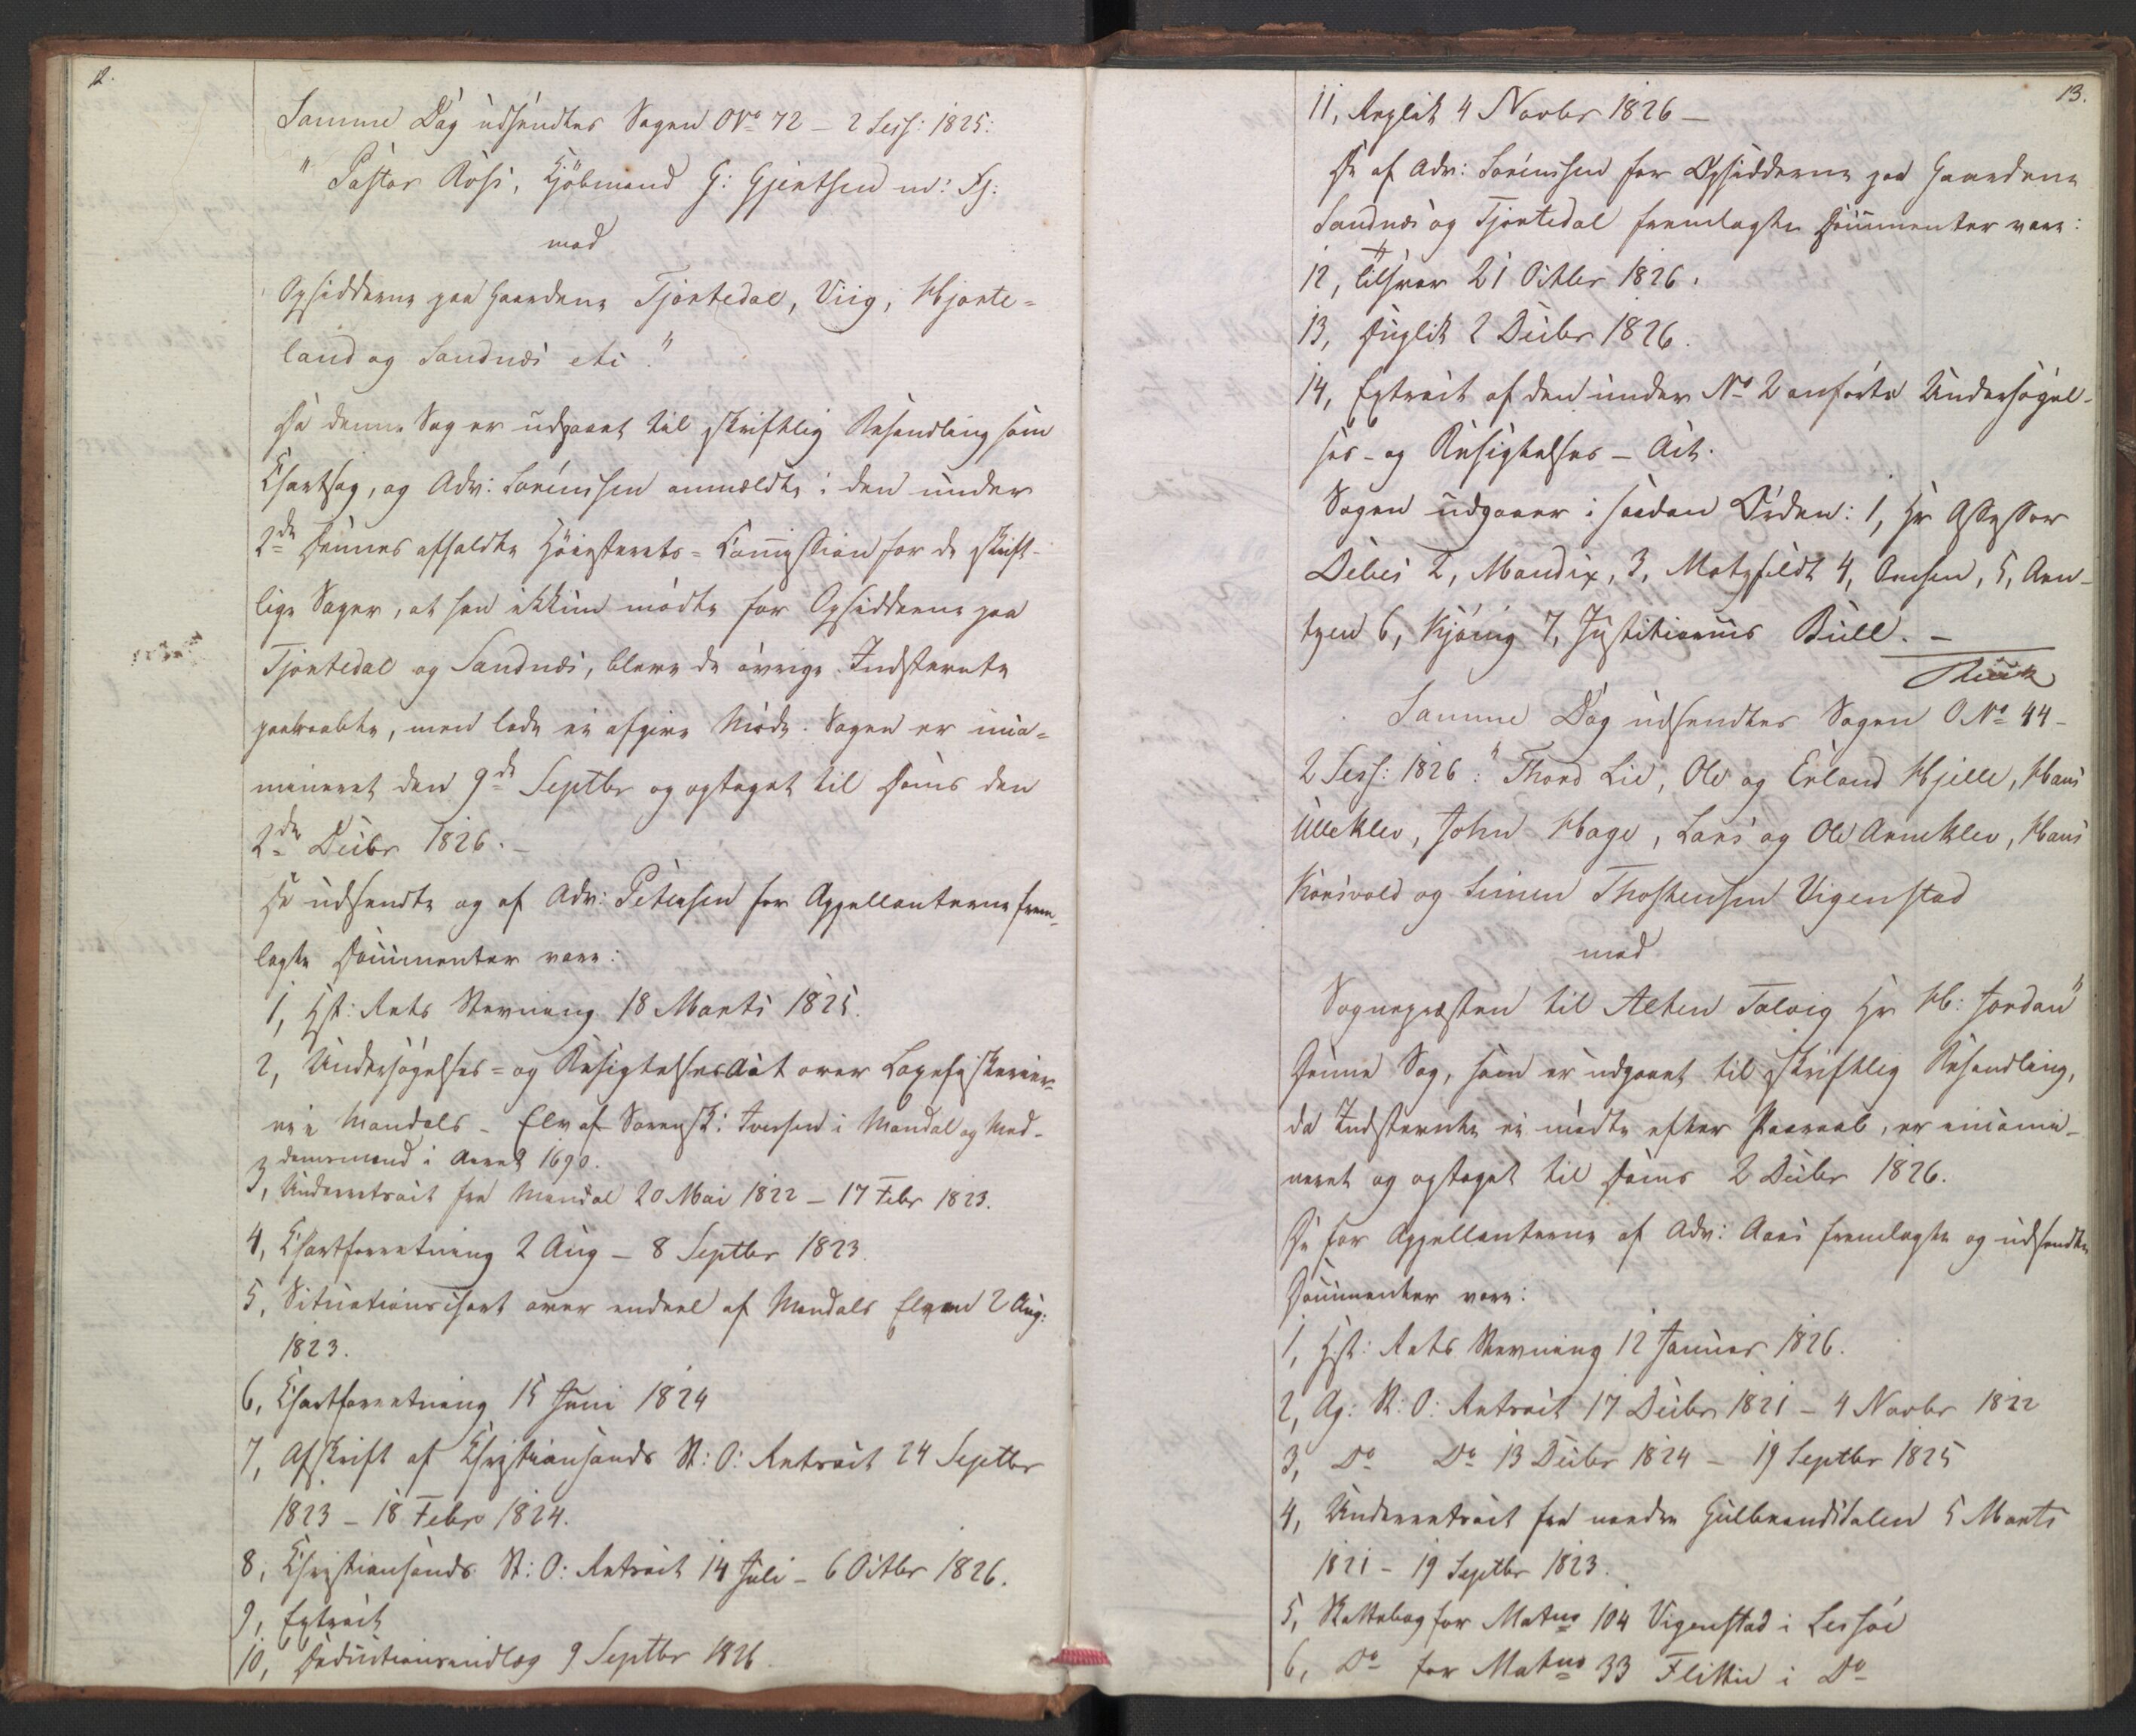 12.
Samme Dag udsendtes Sagen O No 72 – 2 Sess: 1825:
"Pastor Rosi, Kjöbmand G: Gjertsen m: Fl:
mod
Opsidderne paa Gaardene Tjortedal, Viig, Hjorte=
land og Sandnæs etc."
Da denne Sag er udgaaet til skriftlig Behandling som
Chartsag, og Adv: Sörenssen anmeldte i den under
2de Dennes afholdte Höiesterets=Commission for de skrift-
lige Sager, at han ikkun mödte for Opsidderne paa
Tjortedal og Sandnæs, bleve de övrige Indstevnte
paaraabte, men lode ei afgive Möde. Sagen er inca=
mineret den 9de Septbr og optaget til Doms den
2den Decbr 1826. –
De udsendte og af Adv: Petersen for Appellanterne frem-
lagte Documenter vare:
1, Hst: Rets Stevning 18 Marts 1825.
2, Undersögelses= og BesigtelsesAct over Laxefiskerier-
ne i Mandals – Elv af Sorensk: Iversen i Mandal og Med-
domsmænd i Aaret 1690.
3, Underretsact fra Mandal 20 Mai 1822 – 17 Febr 1823.
4, Chartforretning 2 Aug – 8 Septbr 1823.
5, Situationscart over endeel af Mandals Elven 2 Aug:
1823.
6, Chartforretning 15 Juni 1824
7, Afskrift af Christiansands St: O: Retsact 24 Septbr
1823 – 18 Febr 1824.
8, Christiansands St: O: Retsact 14 Juli – 6 Octbr 1826.
9, Extract
10, Deductionsindlæg 9 Septbr 1826.
13.
11, Replik 4 Novbr 1826 –
De af Adv: Sörenssen for Opsidderne paa Gaardene
Sandnæs og Tjortedal fremlagte Documenter vare:
12, Tilsvar 21 Octbr 1826.
13, Duplik 2 Decbr 1826.
14, Extract af den under No 2 anförte Undersögel-
ses- og Besigtelses – Act.
Sagen udgaaer i saadan Orden: 1, Hr Assessor
Debes 2, Mandix, 3, Motzfeldt 4, Omsen, 5, Arn-
tzen 6, Kjönig 7, Justitiarius Bull. –
Samme Dag udsendtes Sagen O No 44 –
2 Sess: 1826: "Thord Lie, Ole og Erland Hjelle, Hans
Ulleklev, John Hage, Lars og Ole Arneklev, Hans
Korsvold og Simen Thostensen Vigenstad
mod
Sognepræsten til Alten Talvig Hr H: Jordan"
Denne Sag, som er udgaaet til skriftlig Behandling,
da Indstevnte ei mödte efter Paaraab, er incami-
neret og optaget til Doms 2 Decbr 1826.
De for Appellanterne af Adv: Aars fremlagte og udsendte
Documenter vare:
1, Hst: Rets Stevning 12 Januar 1826.
2, Ag: St: O: Retsact 17 Decbr 1821 – 4 Novbr 1822
3, Do Do 13 Decbr 1824 – 19 Septbr 1825
4, Underretsact fra nordre Gulbrandsdalen 5 Marts
1821 – 19 Septbr 1823.
5, Skattebog for Matno 104 Vigenstad i Lessöe
6, Do for Matno 33 Flittie i Do